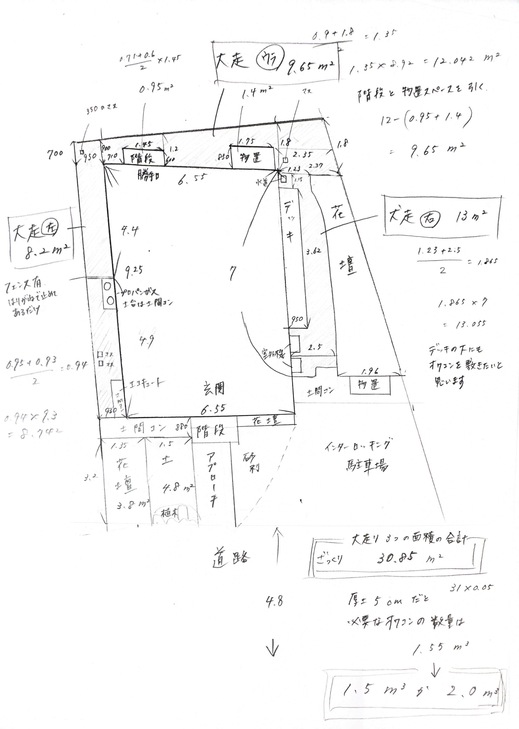 0.9+1.8
2
= 1.35
1.35 × 8.92 = 12.042 m²
階段と物置スペースを引く
12-(0.95+1.4)
= 9.65 m²
大走 ウラ 9.65 m²
0.71+0.6
2
× 1.45
0.95 m²
1.4 m²
700
950
900
710
1.45
1.2
階段
勝手口
6.55
1.75
850
物置
1.8
2.35
1.8
1.23
2.37
大走 左
8.2 m²
4.4
9.25
フェンス有
はりがねで止めて
あるだけ
プロパンガス
土台は土間コン
4.9
0.95+0.93
2
= 0.94
0.94 × 9.3
= 8.742
エコキュート
玄関
6.55
7
デッキ
3.62
950
2.5
室外機
花壇
犬走 右 13 m²
1.23+2.5
2
= 1.865
1.865 × 7
= 13.055
デッキの下にも
オワコンを敷きたいと
思います
1.96
物置
土間コン
土間コン
880
階段
花壇
3.2
1.35
1.5
花壇
3.8 m²
土
4.8 m²
植木
アプローチ
砂利
インターロッキング
駐車場
道路
4.8
犬走り 3つの面積の合計
ざっくり 30.85 m²
31 × 0.05
厚さ 5cm だと
必要なオワコンの数量は
1.55 m³
1.5 m³ か 2.0 m³